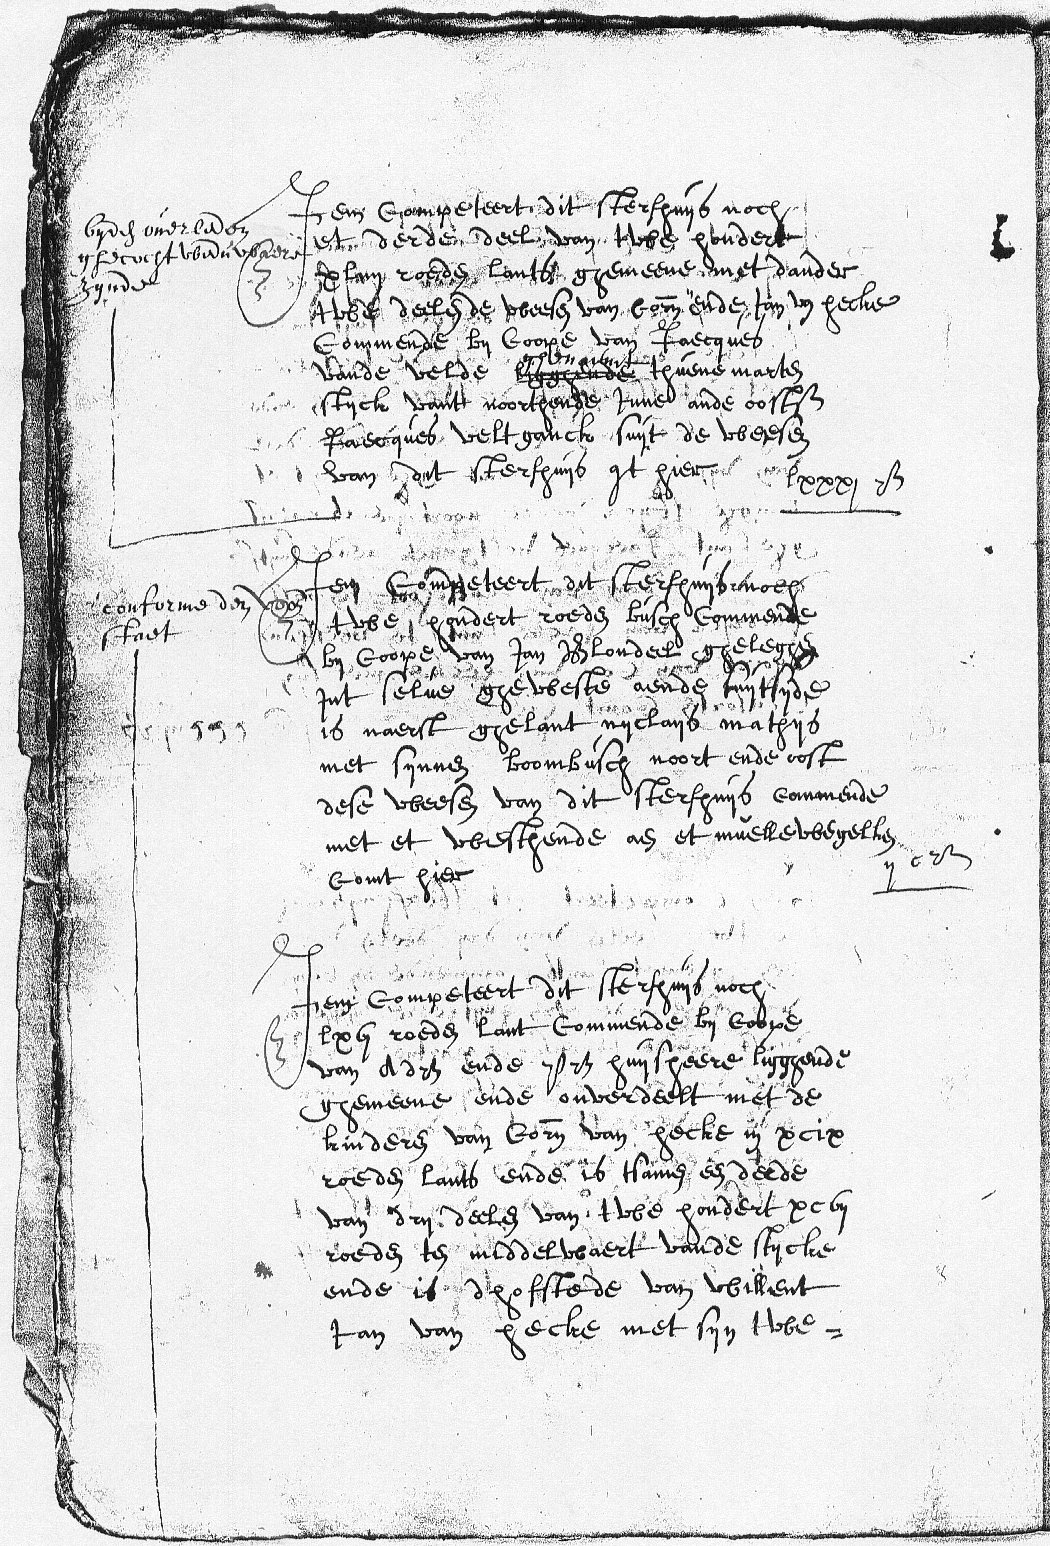 byden overleden
ghecocht
zynde
Item Competeert dit sterfhuijs noch
et derde deel van twee hondert
roeden lants ghemeene met dander
twee deelen de weesen van Corn ende Jan van hecke
Commende by Coope van Jacques
vande velde ligghende thuene marten
stijck vant noorthende
Jacques veltganck suijt de weesen
van dit sterfhuijs hier
lxxxj R
conforme den
staet
Item Competeert dit sterfhuijs noch
twee hondert roeden busch Commende
by Coope van Jan Blondeel gheleghen
int selve gheweste aende suytsyde
is naerst ghelant nyclaijs mathijs
met synnen boombusch noort ende oost
dese weesen van dit sterfhuijs Commende
met et westhende an et muellewegelken
Comt hier
ij c R
Item Competeert dit sterfhuijs noch
roeden lant Commende by Coope
van Adr ende huijsheere ligghende
ghemeene ende onverdeelt met de
kinderen van Corn van hecke in xcix
roeden lants ende is tsamen een derde
van drij deelen van twee hondert xcvij
roeden ten middelwaert vande stijcke
ende is dhofstede van willent
Jan van hecke met syn twe =